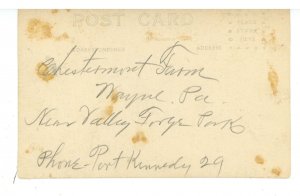 POST CARD
CORRESPONDENCE ADDRESS
PLACE
STAMP
HERE
Chestermont Farm
Wayne, Pa
Near Valley Forge Park
Phone- Port Kennedy 29